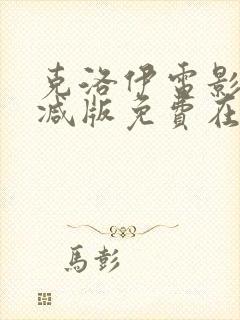 克洛伊電影
减版免費在
馬彭